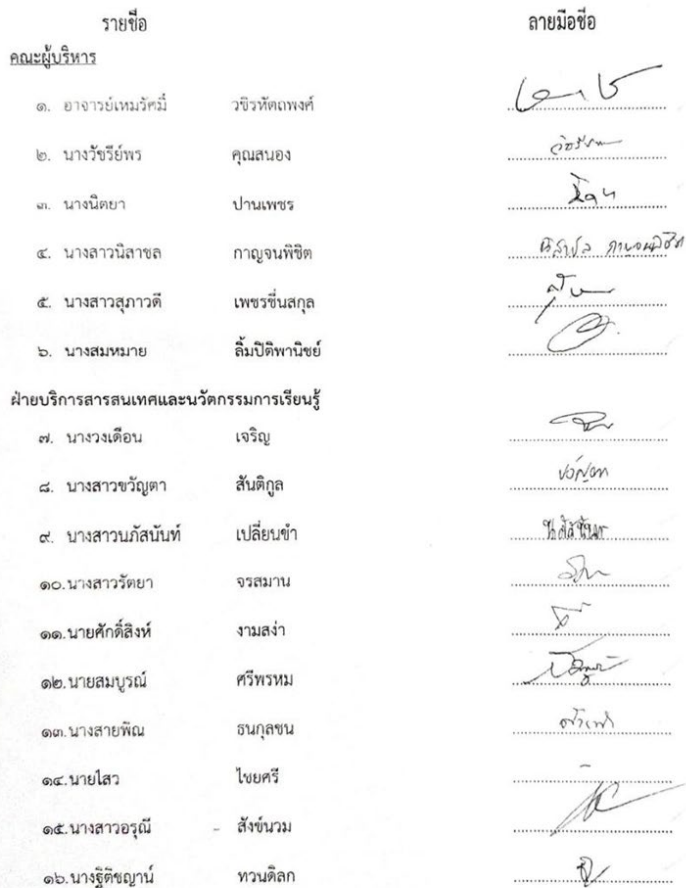 รายชื่อ ลายมือชื่อ
คณะผู้บริหาร
๑. อาจารย์เหมรัศมิ์ วชิรหัตถพงศ์
๒. นางวัชรีย์พร คุณสนอง
๓. นางนิตยา ปานเพชร
๔. นางสาวนิสาชล กาญจนพิชิต นิสาชล กาญจนพิชิต
๕. นางสาวสุภาวดี เพชรชื่นสกุล
๖. นางสมหมาย ลิ้มปิติพานิชย์
ฝ่ายบริการสารสนเทศและนวัตกรรมการเรียนรู้
๗. นางวงเดือน เจริญ
๘. นางสาวขวัญตา สันติกูล ขวัญตา
๙. นางสาวนภัสนันท์ เปลี่ยนขำ นภัสนันท์
๑๐.นางสาวรัตยา จรสมาน
๑๑.นายศักดิ์สิงห์ งามสง่า
๑๒.นายสมบูรณ์ ศรีพรหม
๑๓.นางสายพิณ ธนกุลชน
๑๔.นายไสว ไชยศรี -
๑๕.นางสาวอรุณี - สังข์นวม
๑๖.นางฐิติชญาน์ ทวนดิลก